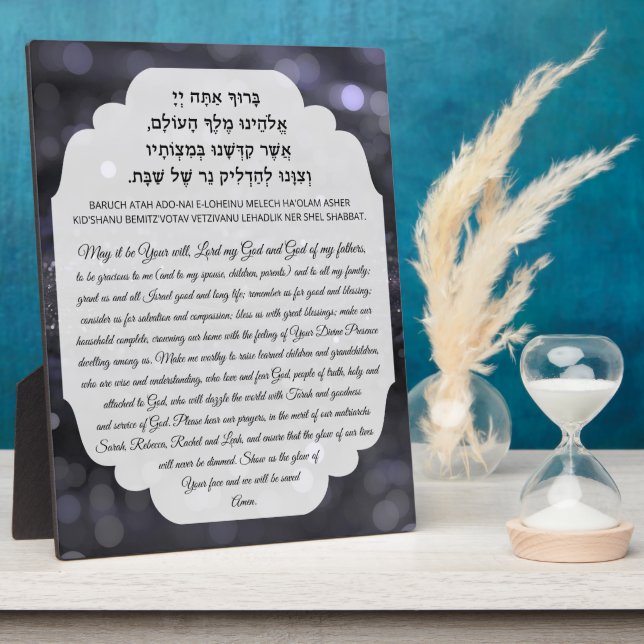 בָּרוּךְ אַתָּה יְיָ
אֱלֹהֵינוּ מֶלֶךְ הָעוֹלָם,
אֲשֶׁר קִדְּשָׁנוּ בְּמִצְוֹתָיו
וְצִוָּנוּ לְהַדְלִיק נֵר שֶׁל שַׁבָּת.
BARUCH ATAH ADO-NAI E-LOHEINU MELECH HA'OLAM ASHER
KID'SHANU BEMITZ'VOTAV VETZIVANU LEHADLIK NER SHEL SHABBAT.
May it be Your will, Lord my God and God of my fathers,
to be gracious to me (and to my spouse, children, parents) and to all my family;
grant us and all Israel good and long life; remember us for good and blessing;
consider us for salvation and compassion; bless us with great blessings; make our
household complete, crowning our home with the feeling of Your Divine Presence
dwelling among us. Make me worthy to raise learned children and grandchildren,
who are wise and understanding, who love and fear God, people of truth, holy and
attached to God, who will dazzle the world with Torah and goodness
and service of God. Please hear our prayers, in the merit of our matriarchs
Sarah, Rebecca, Rachel and Leah, and ensure that the glow of our lives
will never be dimmed. Show us the glow of
Your face and we will be saved
Amen.